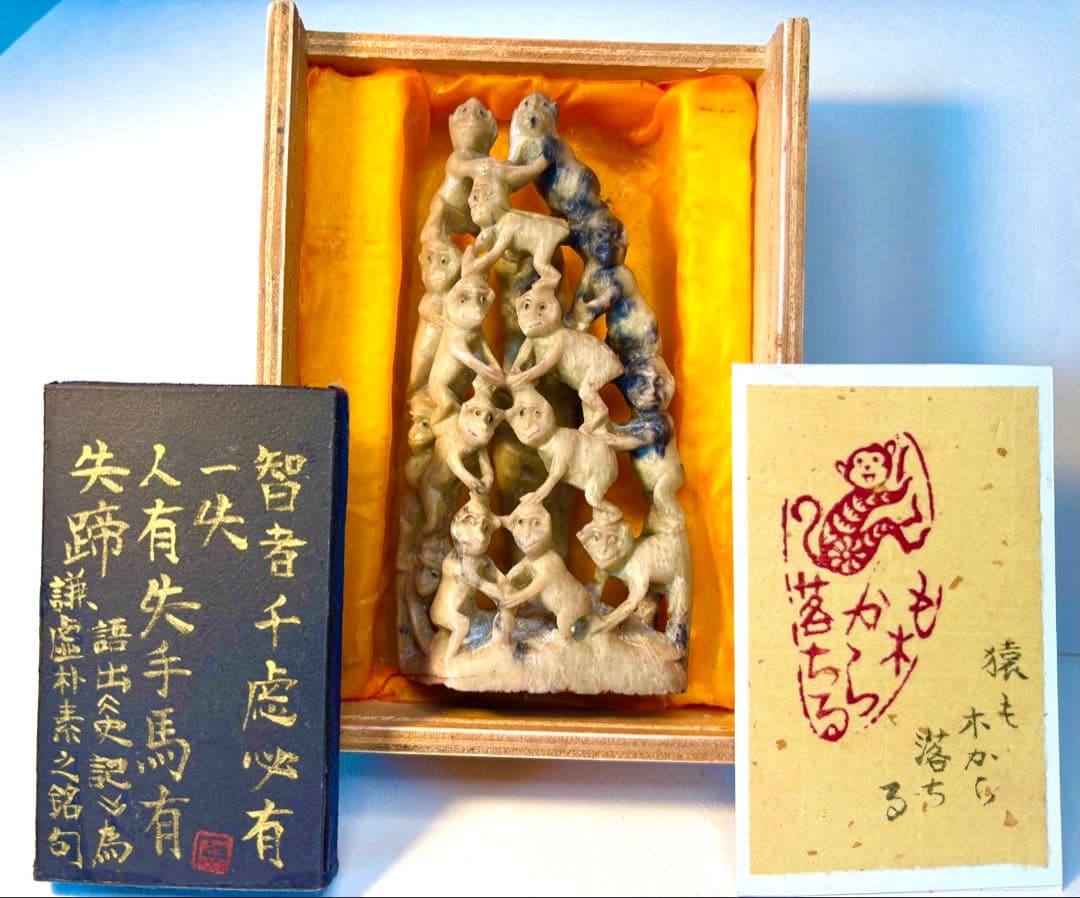 智者千虑必有
一失
人有失手馬有
失蹄
語出《史記》為
謙虛朴素之銘句
も木
から
落ちる
猿も
木から
落ち
る